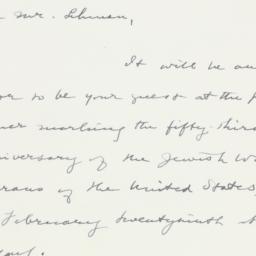 Mr. Lehman,
It will be an
or to be your guest at the
ner marking the fifty-third
niversary of the Jewish Wa
erans of the United States,
February twentyninth